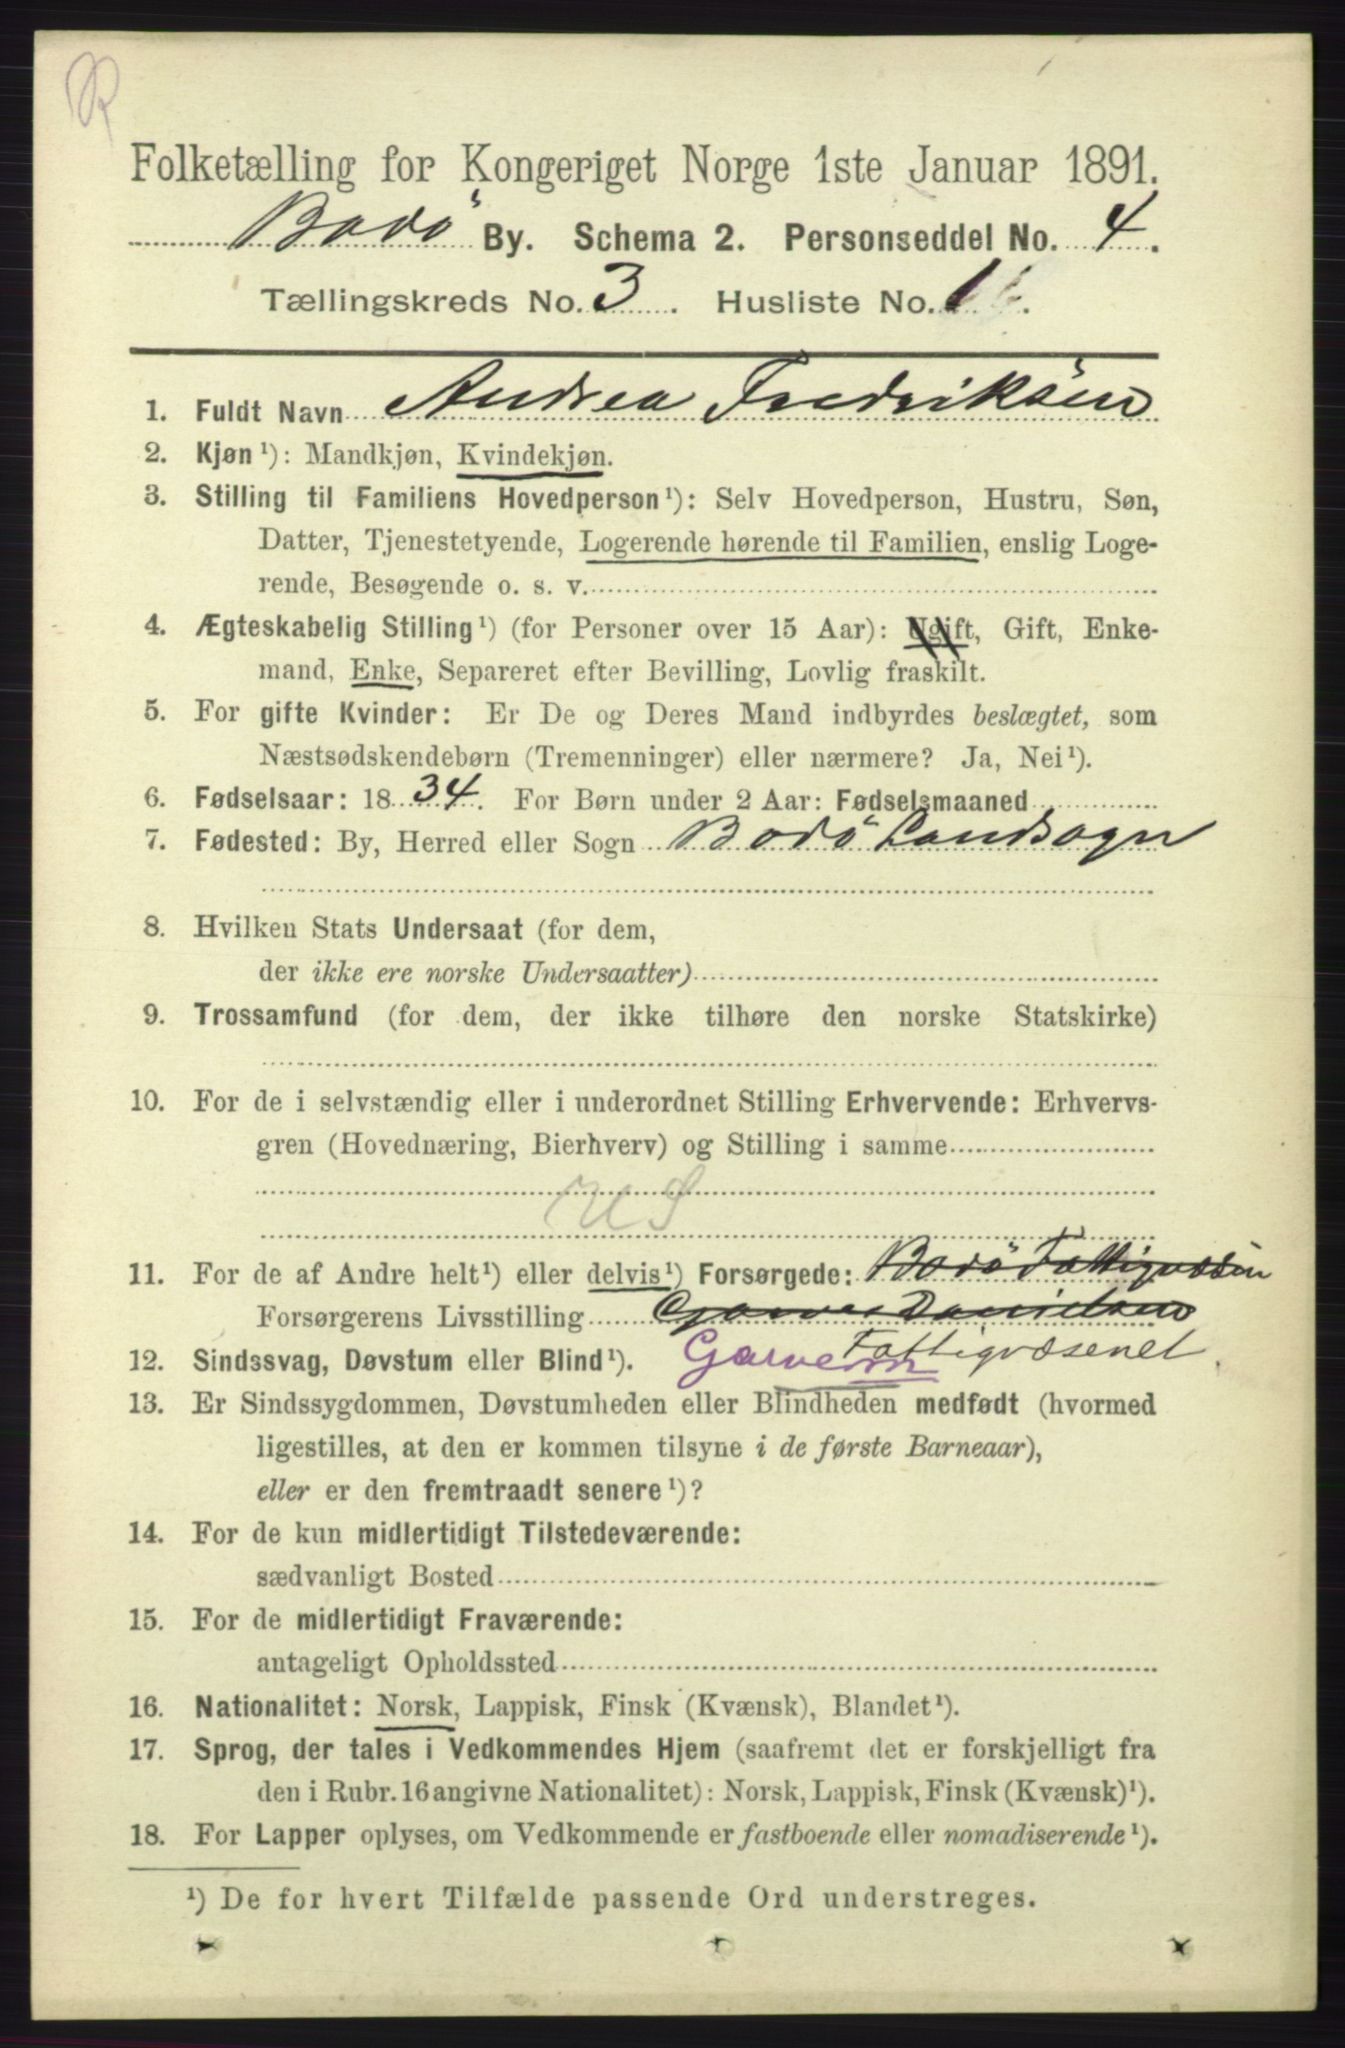 Folketælling for Kongeriget Norge 1ste Januar 1891.
Bodö By. Schema 2. Personseddel No. 4.
Tællingskreds No. 3. Husliste No. 1.
1. Fuldt Navn Andrea Fredriksen
2. Kjøn ¹): Mandkjøn, Kvindekjøn.
3. Stilling til Familiens Hovedperson ¹): Selv Hovedperson, Hustru, Søn,
Datter, Tjenestetyende, Logerende hørende til Familien, enslig Loge-
rende, Besøgende o. s. v.
4. Ægteskabelig Stilling ¹) (for Personer over 15 Aar): Ugift, Gift, Enke-
mand, Enke, Separeret efter Bevilling, Lovlig fraskilt.
5. For gifte Kvinder: Er De og Deres Mand indbyrdes beslægtet, som
Næstsødskendebørn (Tremenninger) eller nærmere? Ja, Nei ¹).
6. Fødselsaar: 1834. For Børn under 2 Aar: Fødselsmaaned
7. Fødested: By, Herred eller Sogn Bodö Landsogn
8. Hvilken Stats Undersaat (for dem,
der ikke ere norske Undersaatter)
9. Trossamfund (for dem, der ikke tilhøre den norske Statskirke)
10. For de i selvstændig eller i underordnet Stilling Erhvervende: Erhvervs-
gren (Hovednæring, Bierhverv) og Stilling i samme
11. For de af Andre helt ¹) eller delvis ¹) Forsørgede: Bodö
Forsørgerens Livsstilling Danielsen
12. Sindssvag, Døvstum eller Blind ¹). Fattigvæsenet
13. Er Sindssygdommen, Døvstumheden eller Blindheden medfødt (hvormed
ligestilles, at den er kommen tilsyne i de første Barneaar),
eller er den fremtraadt senere ¹)?
14. For de kun midlertidigt Tilstedeværende:
sædvanligt Bosted
15. For de midlertidigt Fraværende:
antageligt Opholdssted
16. Nationalitet: Norsk, Lappisk, Finsk (Kvænsk), Blandet ¹).
17. Sprog, der tales i Vedkommendes Hjem (saafremt det er forskjelligt fra
den i Rubr. 16 angivne Nationalitet): Norsk, Lappisk, Finsk (Kvænsk) ¹).
18. For Lapper oplyses, om Vedkommende er fastboende eller nomadiserende ¹).
¹) De for hvert Tilfælde passende Ord understreges.